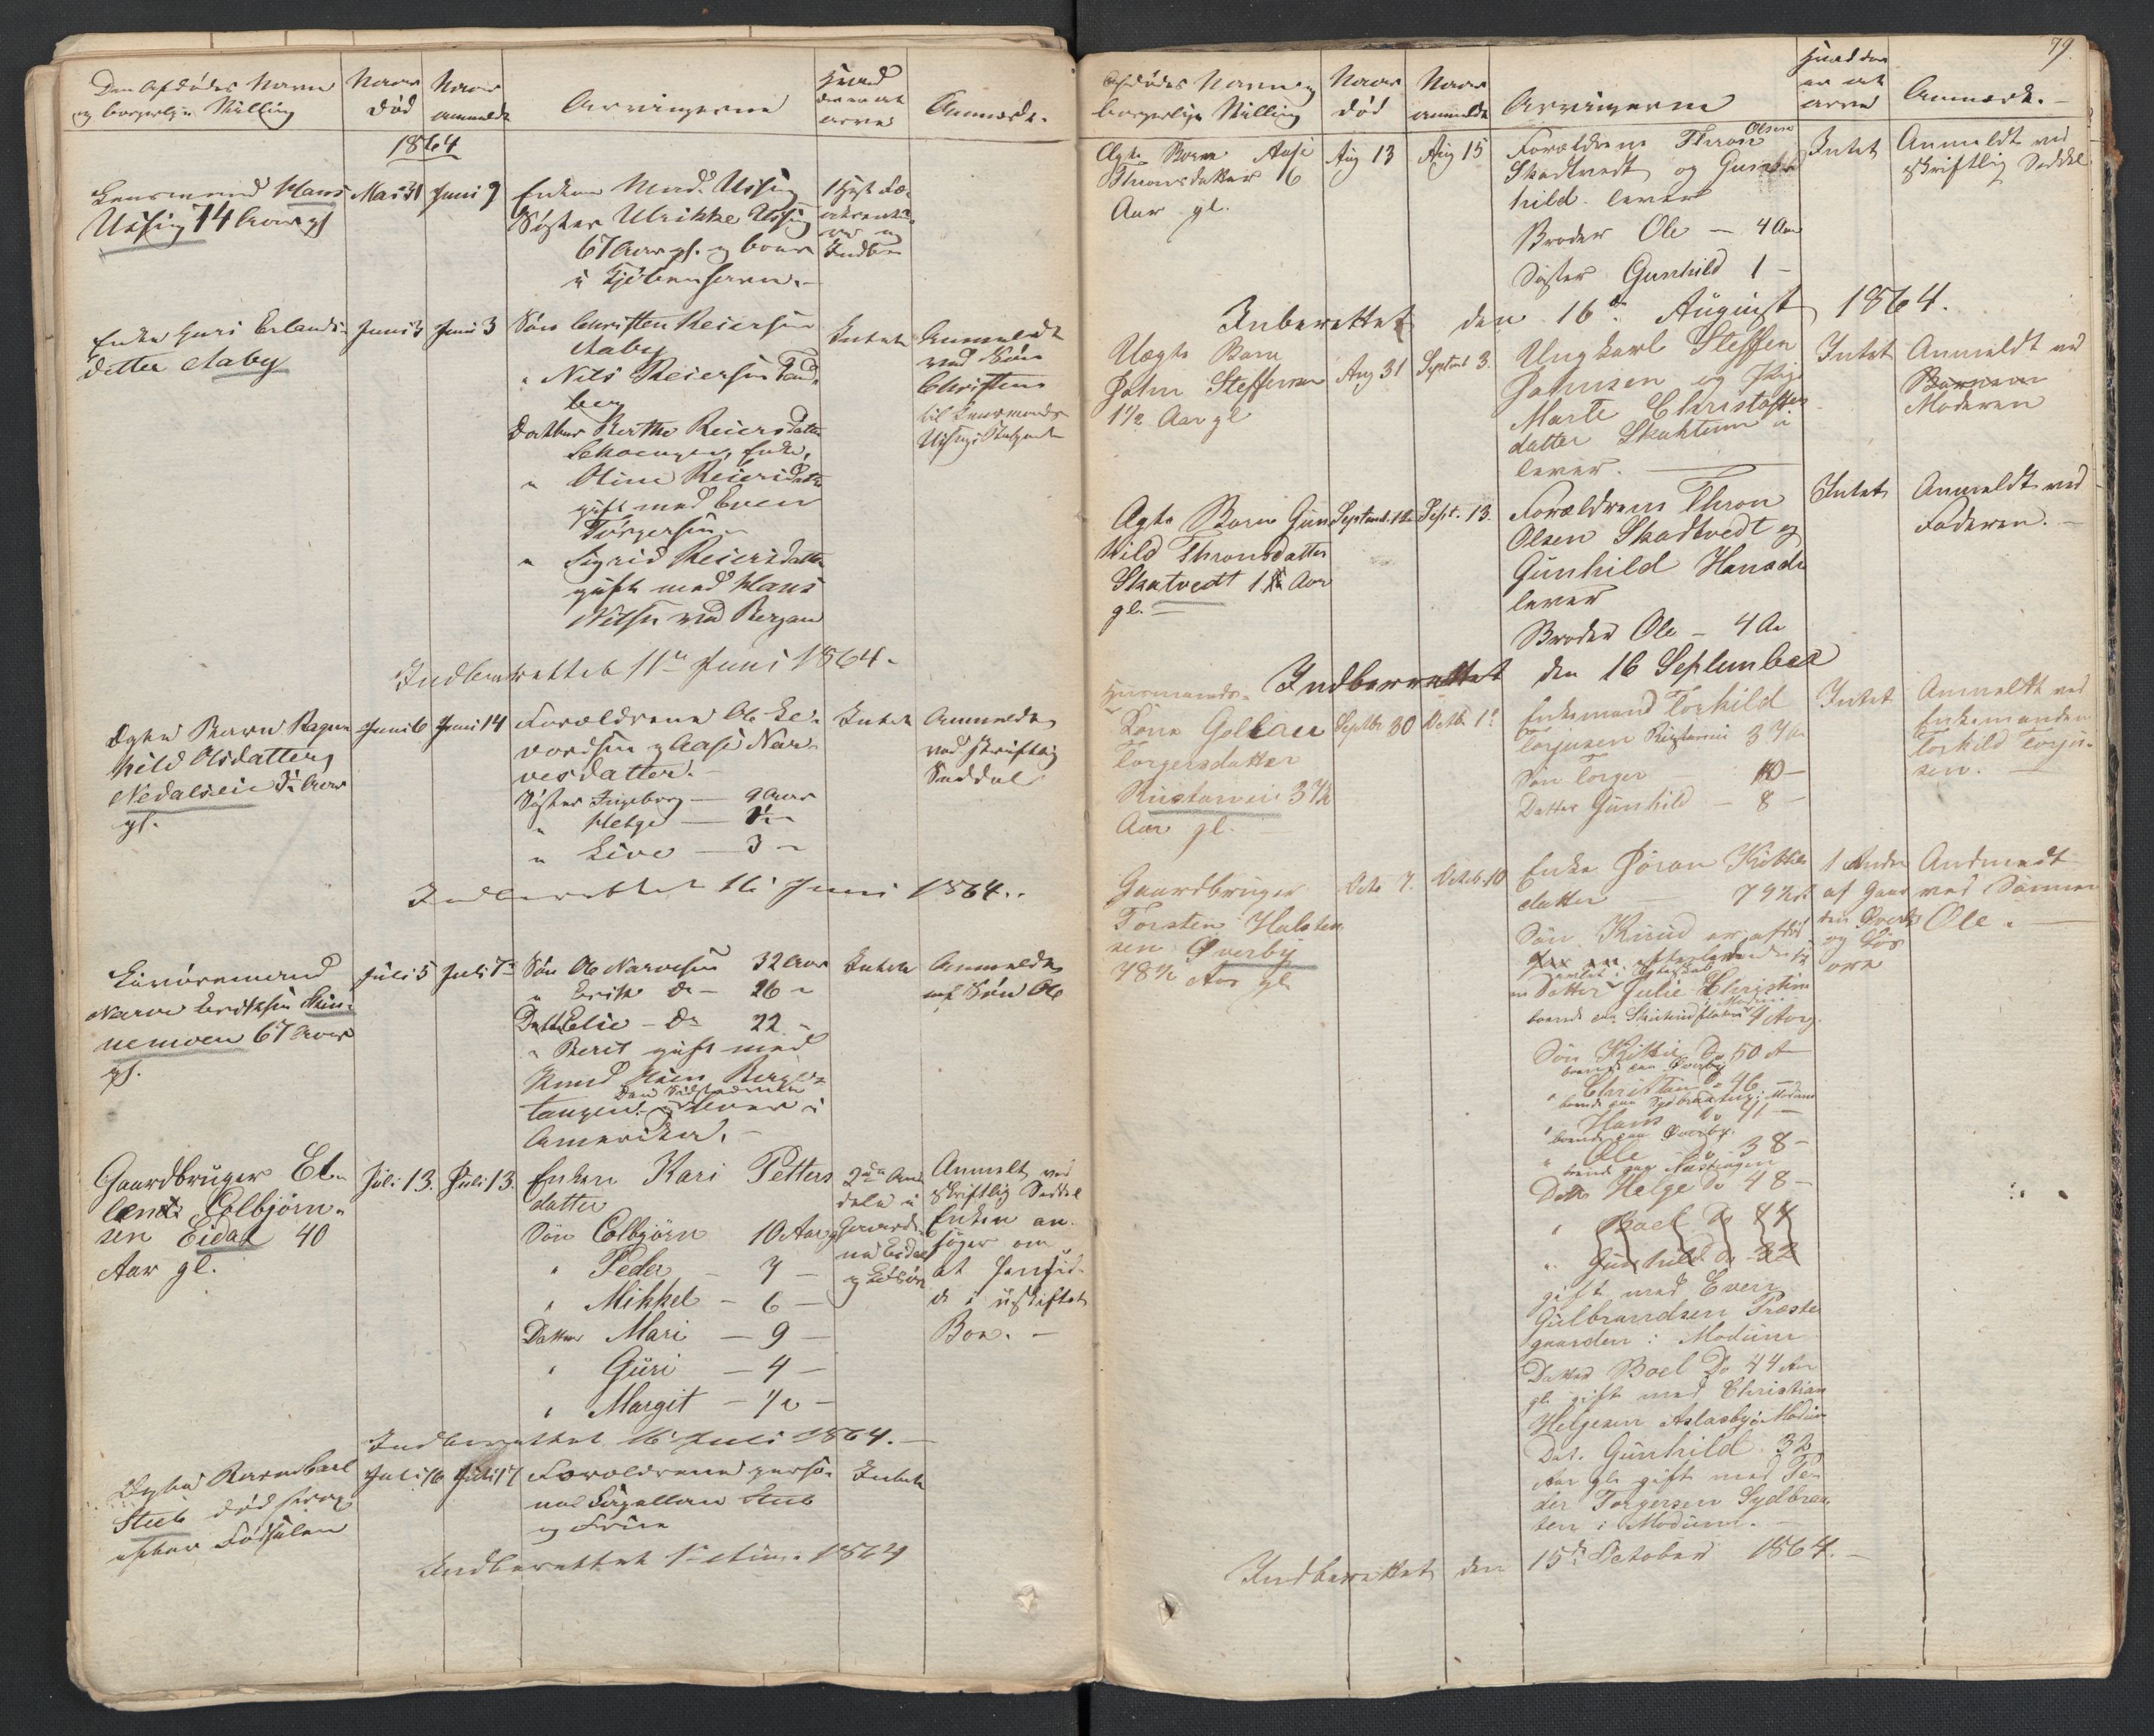 Den Afdødes Navn
og borgerlige Stilling
Naar
død
Naar
anmeldt
Arvingerne
Hvad
der er at
arve
Anmærk.
1864
Lensmand Hans
Ussing 74 Aar gl
Mai 31
Juni 9
Enken Mad. Ussing
Søster Ulrikke Ussing
67 Aar gl. og boer
i Kjøbenhavn.
og
Indbo
Enke Guri Erlands-
datter Aaby
Juni 3
Juni 3
Søn Christen Reiersen
Aaby
" Nils Reiersen
berg
Datter Berthe Reiersdatter
Enke,
" Oline Reiersdatter
gift med Even
Torgersen
" Sigrid Reiersdatter
gift med Hans
Nilsen ved Bergan
Intet
Anmeldt
ved Søn
Christen
til Lensmands
Ussings
Indberettet 11te Juni 1864.
Ægte Barn Ragn-
hild Olsdatter
Nedalseie Aar
gl.
Juni 6
Juni 14
Forældrene Ole
og Aase Nar-
vesdatter.
Søster Ingeborg — 9 Aar
" Helge —
" Live — 3 "
Intet
Anmeldt
ved skriftlig
Seddel
Indberettet 16 Juni 1864.
Narve Eriksen
67 Aar
gl.
Juli 5
Juli 7de
Søn Ole Narvesen 32 Aar
" Erik Do 26 "
Datter Elie — Do 22 "
" Berit gift med
Knud Olsen Berge-
tangen.
lever i
Amerika.
Intet
Anmeldt
af Søn Ole
Gaardbruger Er-
lend Colbjørn-
sen Eidal 40
Aar gl.
Juli 13.
Juli 13.
Enken Kari Petters
datter
Søn Colbjørn 10 Aar gl
" Peder — 7 —
" Mikkel — 6 —
Datter Mari — 9 —
" Guri — 4 —
" Margit — 1/2 —
2de An-
dele i
Gaarde-
ne Eidal
og Løsøre
Anmelt ved
skriftlig Seddel
Enken an-
søger om
at hensid-
de i uskiftet
Boe. —
Indberettet 16 Juli 1864. —
Ægte Barn Carl
Steeb død strax
efter Fødselen
Juli 16
Juli 17
Forældrene perso-
nel Capellan Steeb
og Frue
Intet
Indberettet 1 Aug. 1864
79.
Afdødes Navn og
borgerlige Stilling
Naar
død
Naar
anmeldt
Arvingerne
Hvad der
er at
arve
Anmærk. —
Ægte Barn Aase
Thronsdatter 6
Aar gl.
Aug 13
Aug 15
Forældrene Thron Olsen
Skadtvedt og Gun
hild. lever
Broder Ole — 4 Aar
Søster Gunhild 1 —
Intet
Anmeldt ved
skriftlig Seddel
Inberettet den 16de August 1864.
Uægte Barn
John Steffensen
1 1/2 Aar gl
Aug 31
Septemb 3.
Ungkarl Steffen
Johnsen og Pige
Marte Christoffers
datter
lever.
Intet
Anmeldt ved
Barnem
Moderen
Ægte Barn Gun
hild Thronsdatter
Skatvedt 1 Aar
gl. —
Septemb. 12
Sept. 13.
Forældrene Thron
Olsen Skadtvedt og
Gunhild Hansdr
lever
Broder Ole — 4 Aar
Intet
Anmeldt ved
Faderen. —
Indberettet den 16 September
Huusmands-
Kone Gollau
Torgersdatter
Rustaneie 37 1/2
Aar gl. —
Septbr 30
Octbr 1ste
Enkemand Torkild
Torjusen Rustaneie 37 Aar
Søn Torger 10 —
Datter Gunhild — 8 —
Intet
Anmeldt ved
Enkemanden
Torkild Torju-
sen. —
Gaardbruger
Torsten Halsten
sen Øverby
78 1/2 Aar gl
Octo 7.
Octob. 10
Enke Jøran Kittils
datter — 79 1/2
Søn Knud er afdød
en Datter Julie Christine
boende paa i Modum 4 Aar g.
Søn Kittil Do 50 A
boende paa Øverby
" Christian Do 46 —
boende paa Sydbraaten i Modum
" Hans Do 41 —
boende paa Øverby.
" Ole Do 38 —
boende paa
Dattr Helge Do 48 —
" Boel Do 44
" Gunhild Do 32
gift med Even
Gulbrandsen Præste
gaarden i Modum
Datter Boel Do 44 Aar
gl. gift med Christian
Helgesen Aslaxby i Modum
Dat. Gunhild 32
Aar gl. gift med Pe-
der Torgersen Sydbraa-
ten i Modum. —
1 Andel
af Gaar
den Øverby
og Løs
øre
Andmeldt
ved Sønnen
Ole. —
Indberettet den 15de October 1864. —